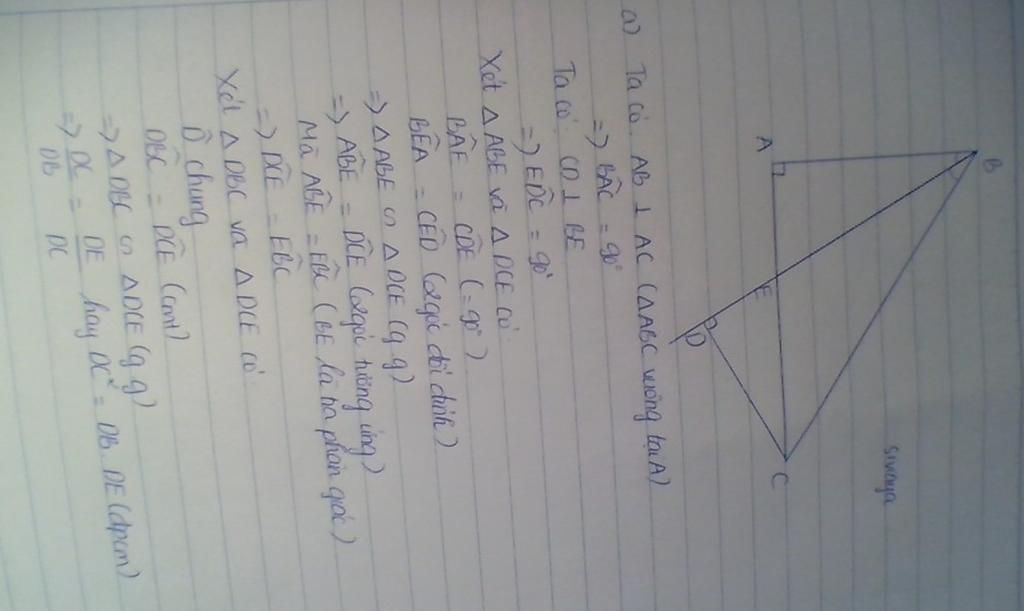 sivaya
B
A
E
D
C
a) Ta có: AB ⊥ AC (ΔABC vuông tại A)
=> BÂC = 90°
Ta có: CD ⊥ BE
=> ED̂C = 90°
Xét ΔABE và ΔDCE có:
BÂE = CD̂E (= 90°)
BÊA = CÊD (2 góc đối đỉnh)
=> ΔABE ∽ ΔDCE (g g)
=> AB̂E = DĈE (2 góc tương ứng)
Mà AB̂E = EB̂C (BE là tia phân giác)
=> DĈE = EB̂C
Xét ΔDBC và ΔDCE có:
D̂ chung
DB̂C = DĈE (cmt)
=> ΔDBC ∽ ΔDCE (g g)
=> DC/DB = DE/DC hay DC² = DB. DE (đpcm)